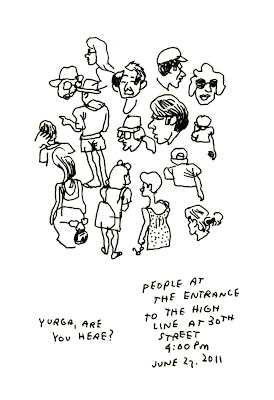 YURGA, ARE
YOU HERE?
PEOPLE AT
THE ENTRANCE
TO THE HIGH
LINE AT 30TH
STREET
4:00 PM
JUNE 29, 2011